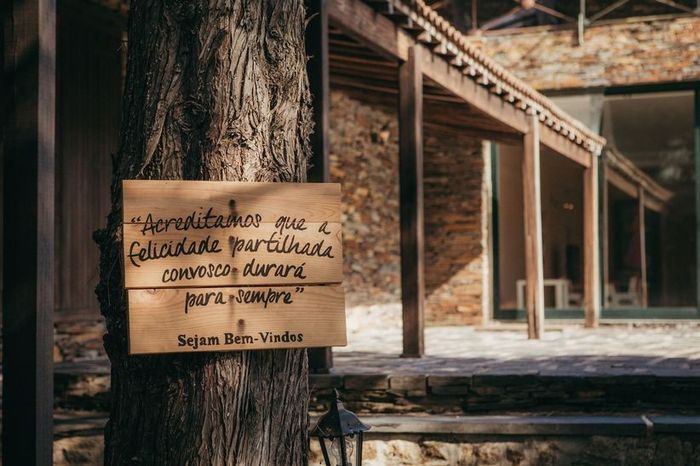 “Acreditamos que a
felicidade partilhada
convosco durará
para sempre”
Sejam Bem-Vindos